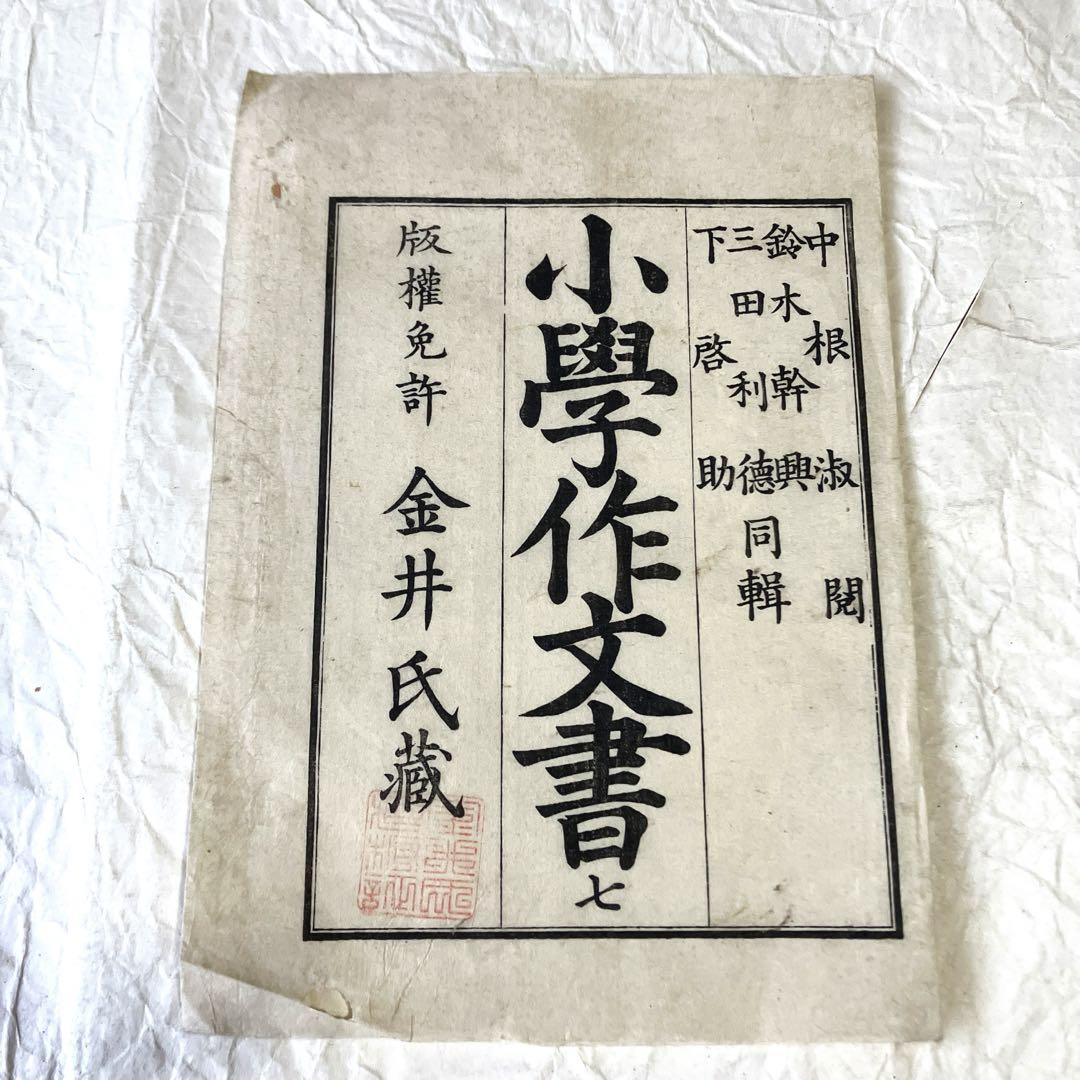 中根淑閲
鈴木幹興
三田利德同輯
下啓助
小學作文書 七
版權免許 金井氏藏